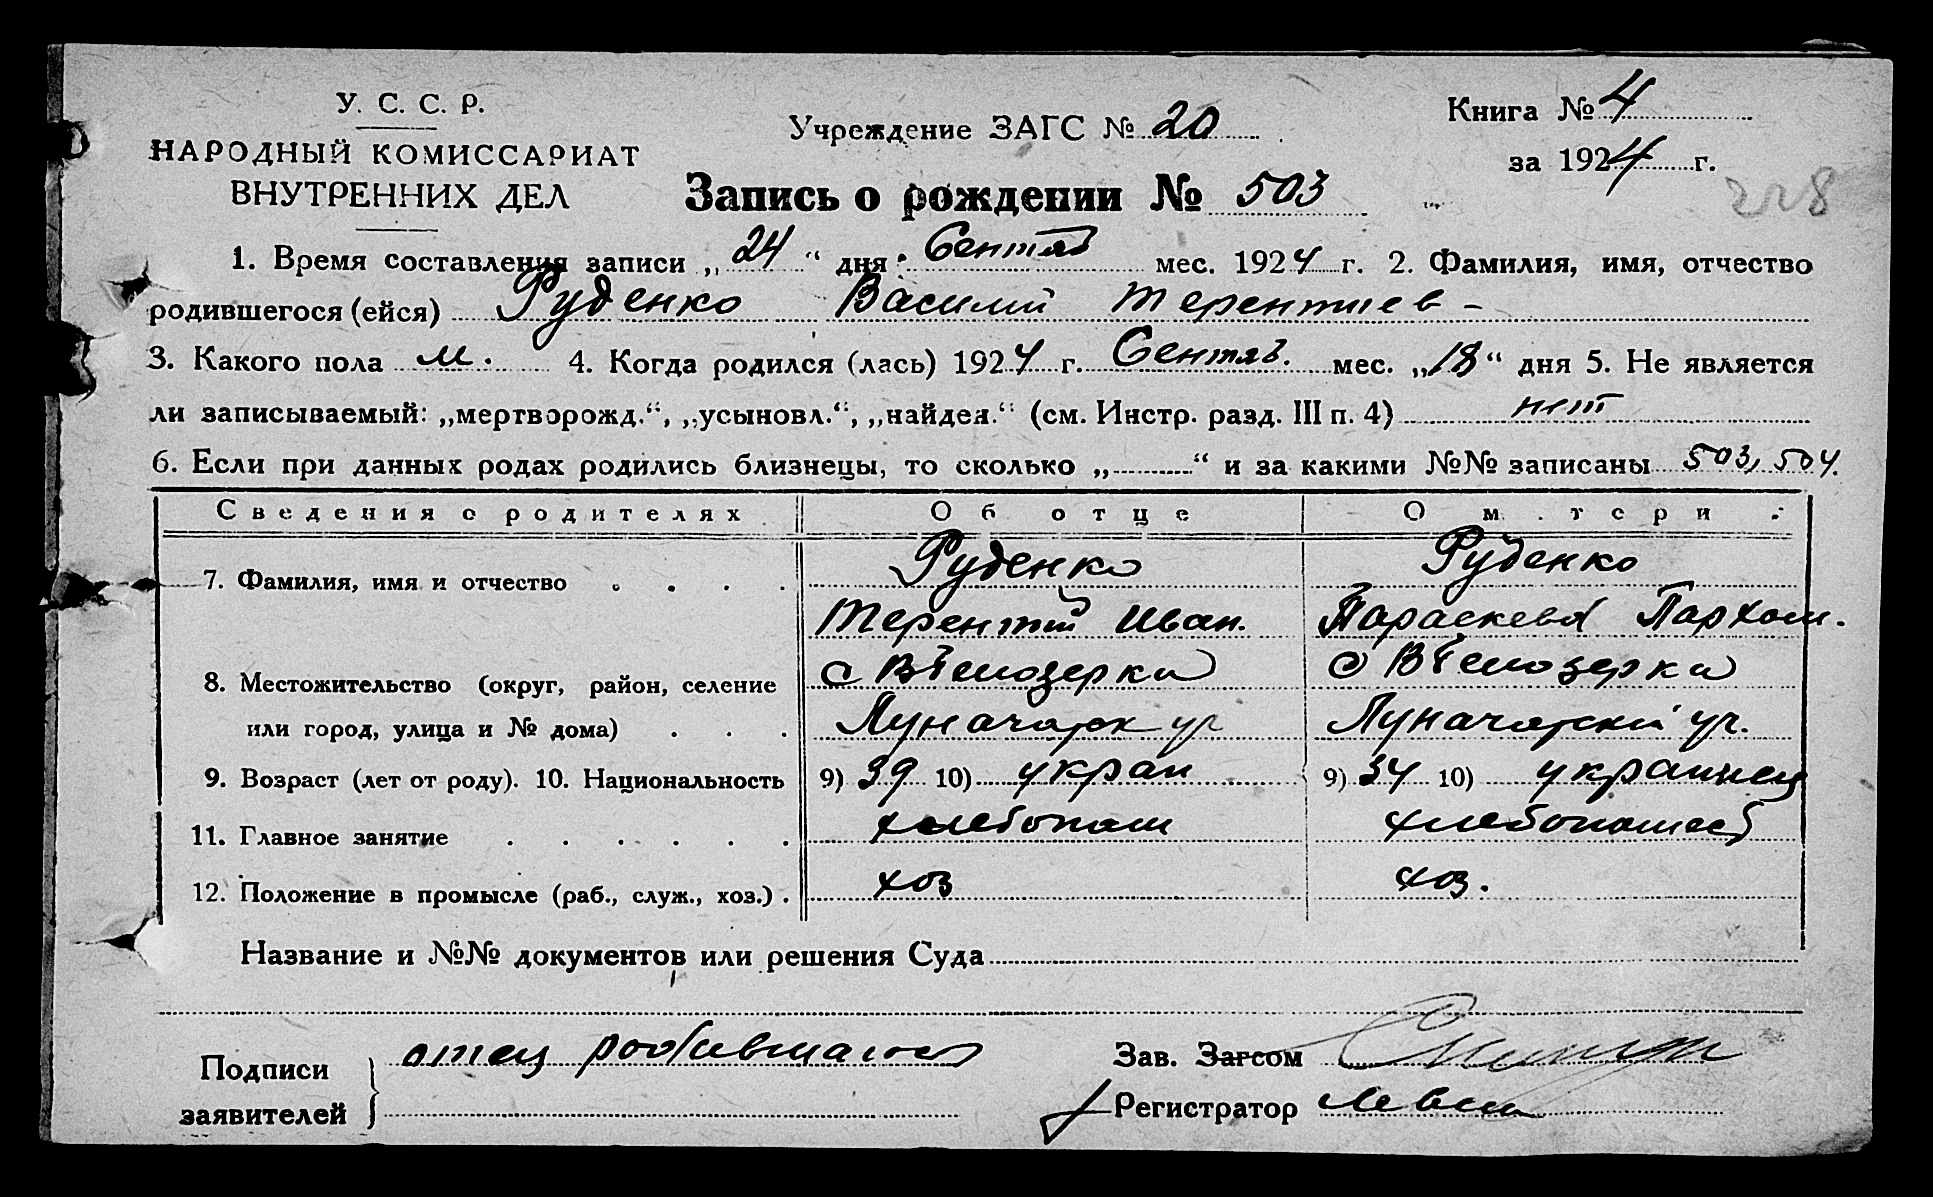 У. С. С. Р.
НАРОДНЫЙ КОМИССАРИАТ
ВНУТРЕННИХ ДЕЛ
Учреждение ЗАГС № 20
Книга № 4
за 1924 г.
Запись о рождении № 503
228
1. Время составления записи „24“ дня Сентяб мес. 1924 г. 2. Фамилия, имя, отчество
родившегося (ейся) Руденко Василий Терентиев -
3. Какого пола м. 4. Когда родился (лась) 1924 г. Сентяб. мес. „18“ дня 5. Не является
ли записываемый: „мертворожд.“, „усыновл.“, „найден.“ (см. Инстр. разд. III п. 4) нет
6. Если при данных родах родились близнецы, то сколько „..........“ и за какими №№ записаны 503, 504.
Сведения о родителях Об отце О м.тери
7. Фамилия, имя и отчество Руденко Руденко
Терентий Иван. Параскева Пархом.
8. Местожительство (округ, район, селение с Белозерка с Белозерка
или город, улица и № дома) Луначарск ул Луначарский ул.
9. Возраст (лет от роду). 10. Национальность 9) 39 10) украи 9) 34 10) украинец
11. Главное занятие хлебопаш хлебопашец
12. Положение в промысле (раб., служ., хоз.) хоз хоз.
Название и №№ документов или решения Суда
Подписи заявителей отец
Зав. Загсом
Регистратор